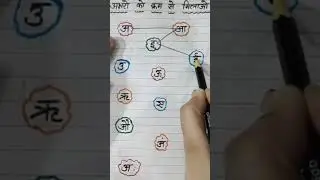 अक्षरों को क्रम से मिलाओ
अ आ
इ
उ ई
ऊ
ऋ ए
औ
अं
अः